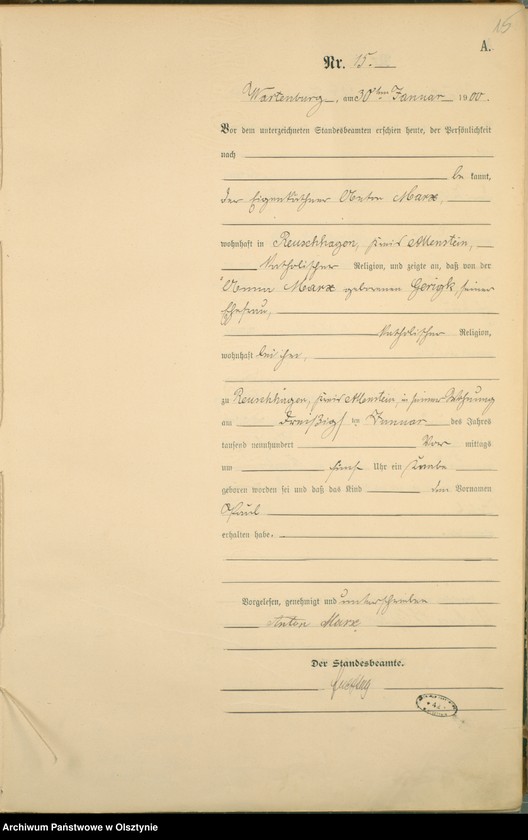 15
A.
Nr. 15.
Wartenburg, am 30ten Januar 1900.
Vor dem unterzeichneten Standesbeamten erschien heute, der Persönlichkeit
nach
be kannt,
der Eigenkäthner Anton Marx,
wohnhaft in Reuschhagen, Kreis Allenstein,
katholischer Religion, und zeigte an, daß von der
Anna Marx geborenen Gerigk, seiner
Ehefrau,
katholischer Religion,
wohnhaft bei ihm,
zu Reuschhagen, Kreis Allenstein, in seiner Wohnung
am dreißigsten Januar des Jahres
tausend neunhundert Vor mittags
um fünf Uhr ein Knabe
geboren worden sei und daß das Kind den Vornamen
Paul
erhalten habe.
Vorgelesen, genehmigt und unterschrieben
Anton Marx
Der Standesbeamte.
Archiwum Państwowe w Olsztynie